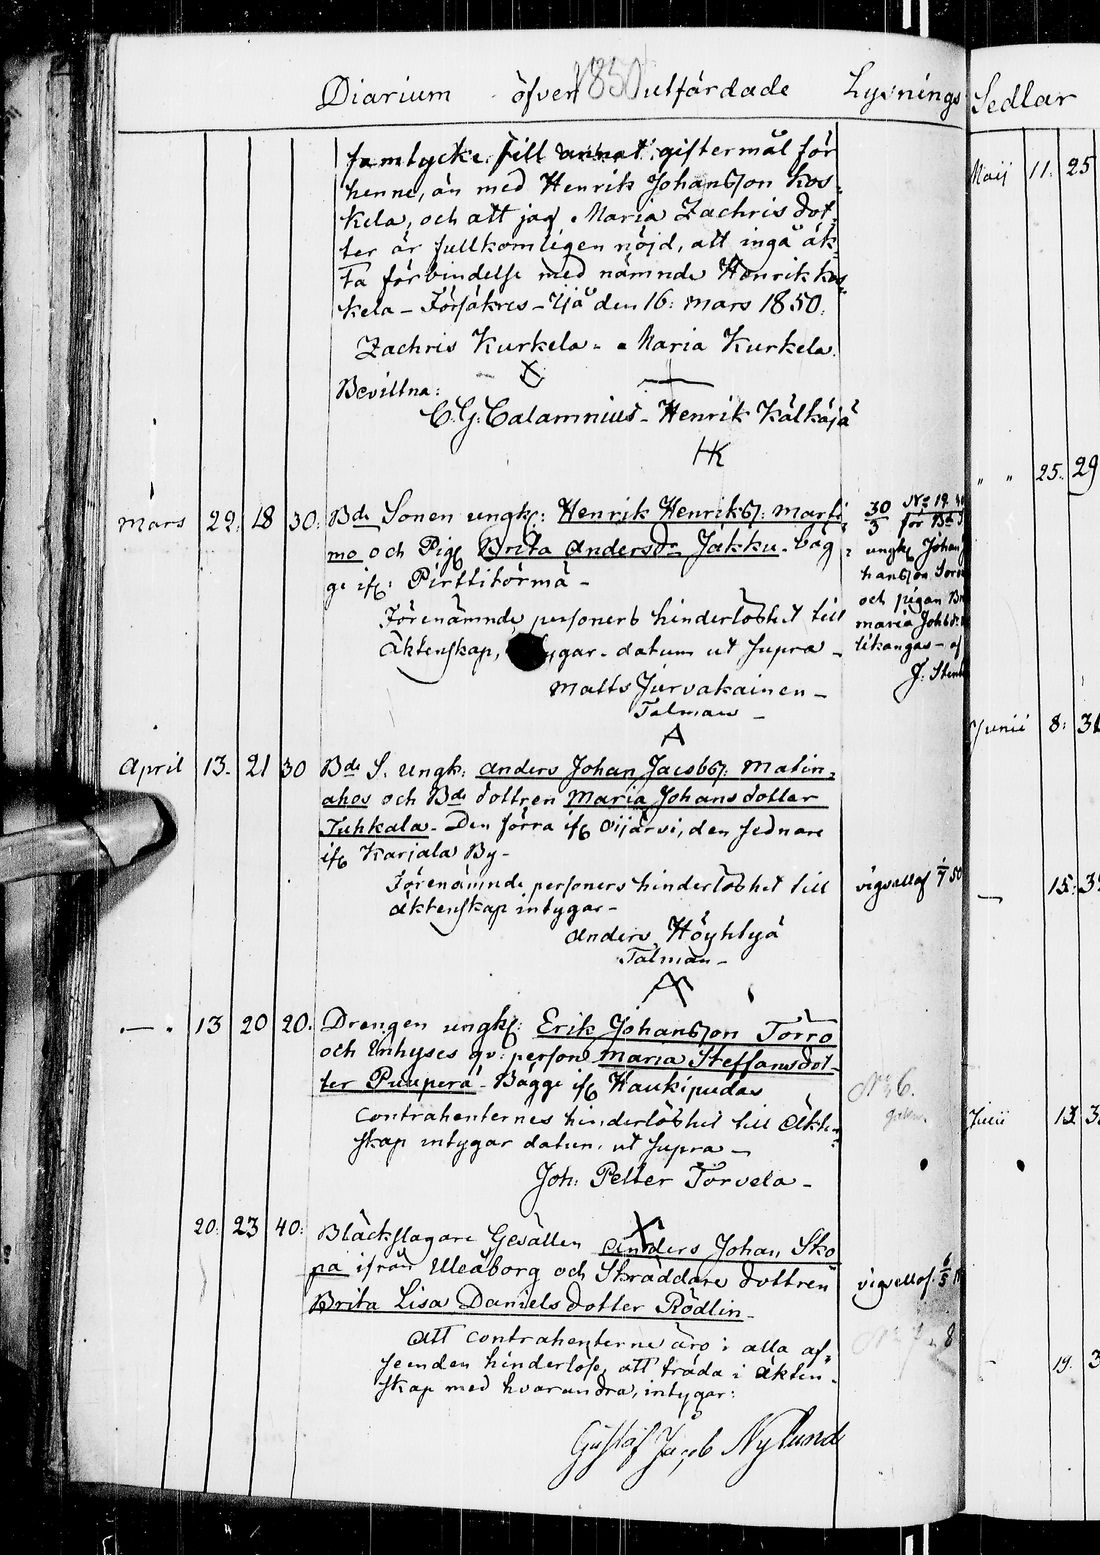 Diarium öfver 1850 utfärdade Lysnings Sedlar
samtycke till annat giftermål för
henne, än med Henrik Johansson Kos=
kela, och att jag Maria Zachris dot=
ter är fullkomligen nöjd, att ingå äk=
ta förbindelse med nämnde Henrik Kos=
kela – Försäkres – Ijå den 16: Mars 1850:
Zachris Kurkela – Maria Kurkela
Bevittna:
C. G. Calamnius – Henrik Kälkäjä
HK
Mars 29. 18 30: Bde Sonen ungk: Henrik Henrikss: Marti=
mo och Pig. Brita Andersdr Jakku – båg=
ge ifr: Pirttitörmä –
Förenämnde personers hinderlöshet till
Äktenskap, datum ut supra –
Matts Jurvakainen –
Talman –
30/3 No 19
för Bde S
ungk Johan
hansson
och pigan
Maria Johsdr
likangas – af
J.
April 13. 21 30 Bde S. ungk: Anders Johan Jacobss: Matin=
ahos och Bde dottren Maria Johansdotter
Tuhkala – Den förra ifr Oijärvi, den sednare
ifr Karjala By –
Förenämnde personers hinderlöshet till
äktenskap intygar –
Anders Höyhtyä
Talman –
vigsellof 1/7 50
– . 13 20 20. Drengen ungk: Erik Johansson Törrö
och Inhyses qv: person Maria Steffansdot=
ter Puuperä – Bägge ifr Haukipudas
Contrahenternes hinderlöshet till Äkten=
skap intygar datum ut supra –
Joh: Petter Törvelä –
No 6.
20: 23 40: Bläckslagare Gesällen Anders Johan Sko
pa ifrån Uleåborg och Skräddare dottren
Brita Lisa Daniels dotter Rödlin –
Att contrahenterne äro i alla af=
seenden hinderlöse att träda i äkten=
skap med hvarandra, intygar:
Gustaf Jacob Nylund
vigsellof. 6/5
8
Maij 11: 25
" " 25. 29
Junii 8:
– 15:
Julii 13.
19.